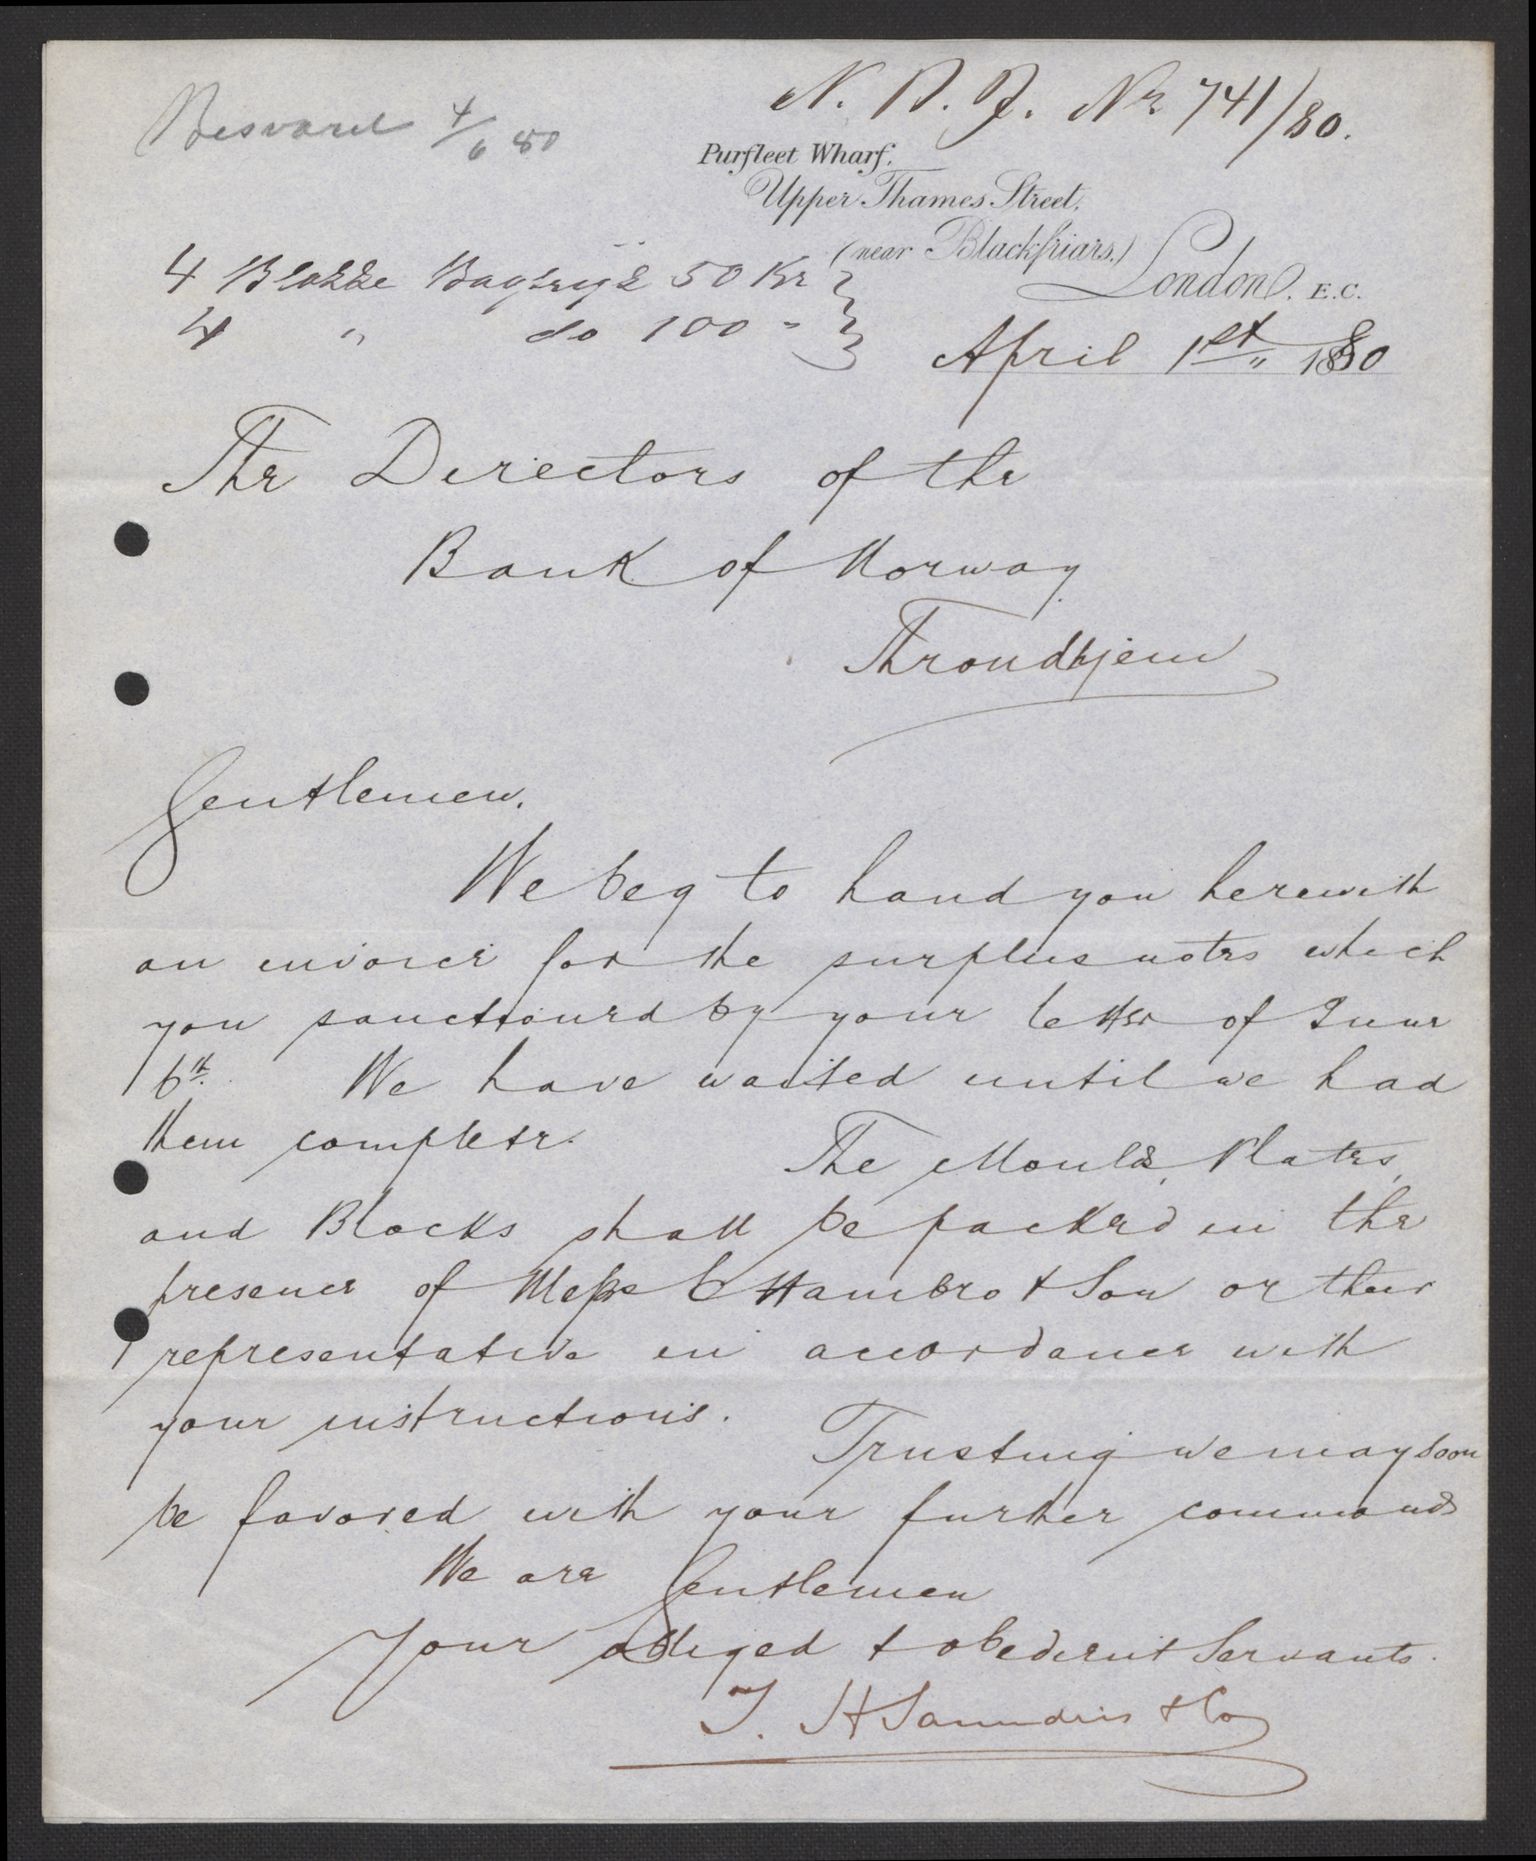 Besvaret 4/6 80
N. B. J. Nr. 741/80.
Purfleet Wharf,
Upper Thames Street,
(near Blackfriars.)
London, E.C.
4 Blokke Bagtryk 50 Kr
4 " do 100 "
April 1st " 1880
The Directors of the
Bank of Norway
Throndhjem
Gentlemen.
We beg to hand you herewith
an invoice for the surplus notes which
you sanctioned by your letter of June
6th. We have waited until we had
them complete.
The Moulds, Plates,
and Blocks shall be packed in the
presence of Messrs C Hambro & Son or their
representative in accordance with
your instructions.
Trusting we may soon
be favored with your further commands
We are Gentlemen
Your obliged & obedient Servants.
T. H Saunders & Co